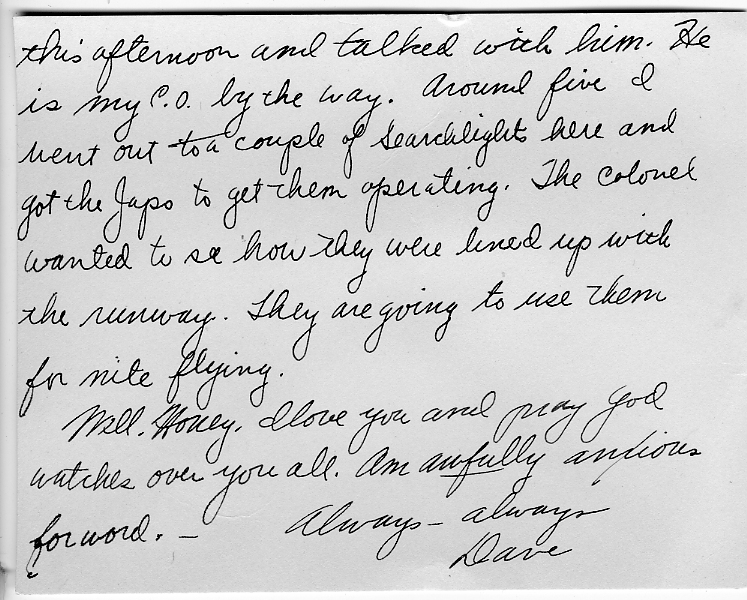 this afternoon and talked with him. He
is my C.O. by the way. Around five I
went out to a couple of searchlights here and
got the Japs to get them operating. The colonel
wanted to see how they were lined up with
the runway. They are going to use them
for nite flying.
Well, Honey, I love you and pray God
watches over you all. Am awfully anxious
for word. – Always – always
Dave